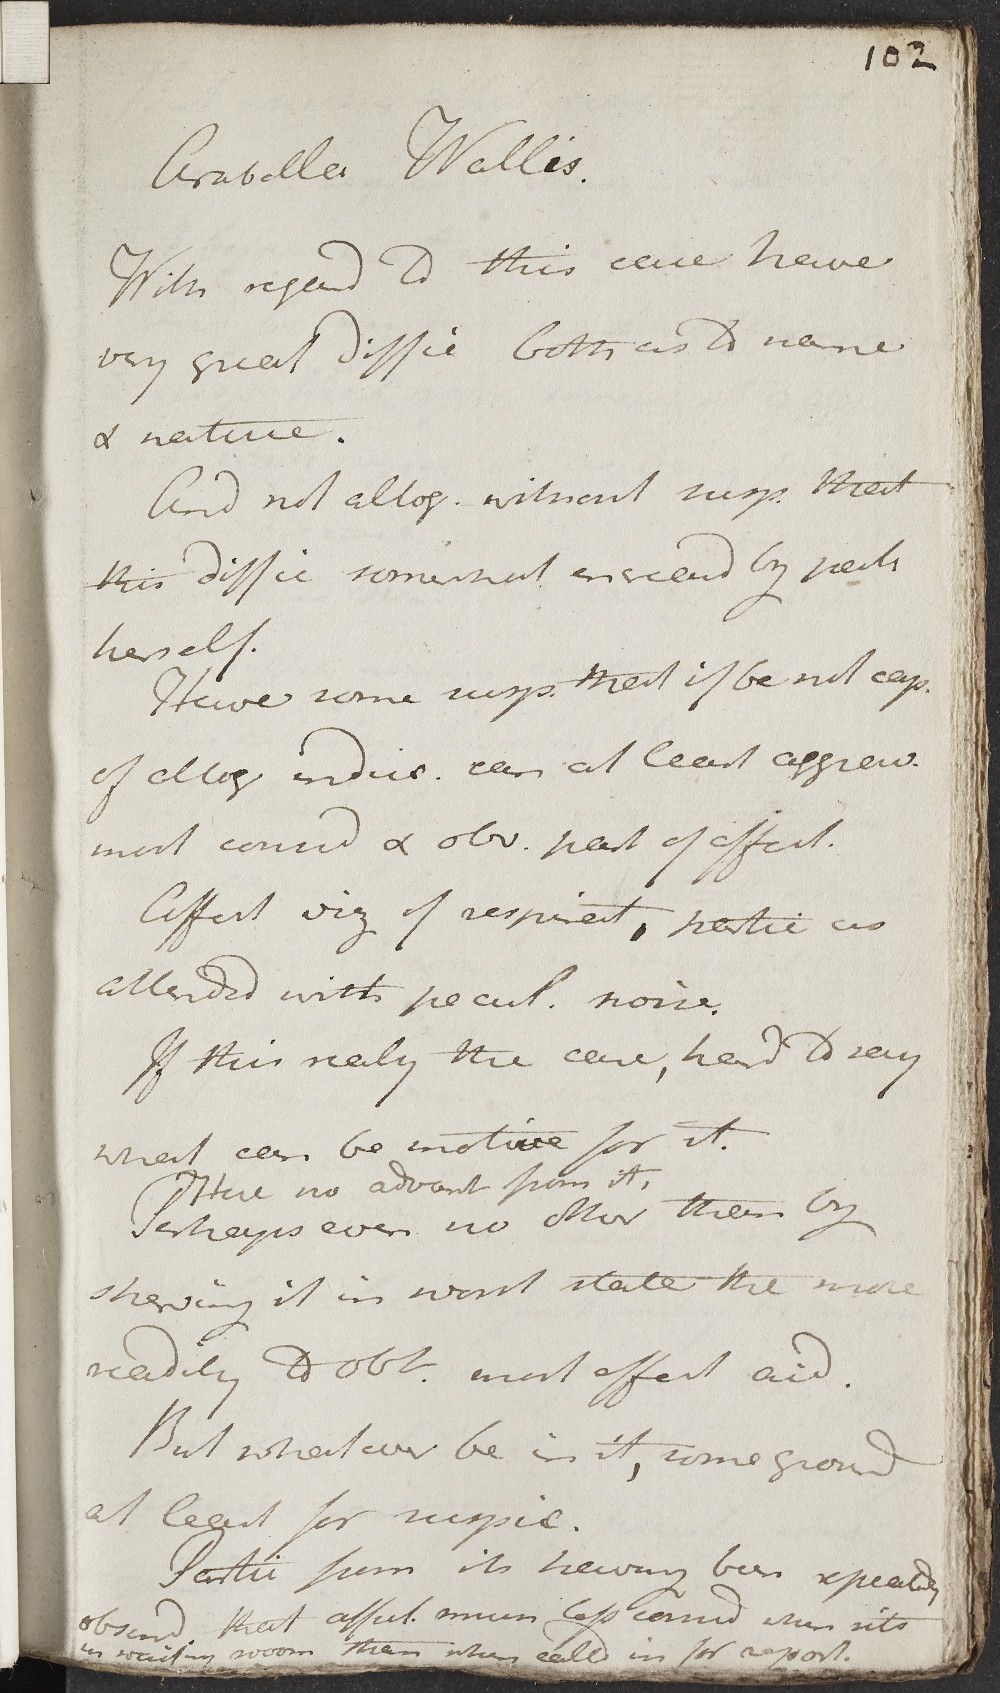 102
Arabella Wallis.
With regard to this case have
very great diffic both as to name
& nature.
And not altog. without susp. that
this diffic somewhat encread by pat
herself.
Have some susp. that if be not cap.
of altog induc. can at least aggrav.
most consid & obv. part of affect.
Affect viz of respirat, partic as
attended with pecul. noise.
If this realy the case, hard to say
what can be motive for it.
Here no advant from it,
Perhaps even no other than by
shewing it in worst state the more
readily to obt. most effect aid.
But whatever be in it, some ground
at least for suspic.
Partic from its having been repeatedly
observd that affect. much less consid when sits
in waiting room than when calld in for report.